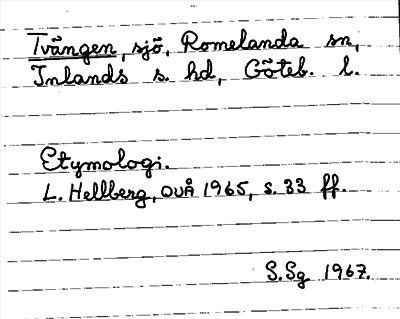 Tvången, sjö, Romelanda sn,
Inlands s. hd, Göteb. l.
Etymologi.
L. Hellberg, OUÅ 1965, s. 33 ff.
S.Sg 1967.